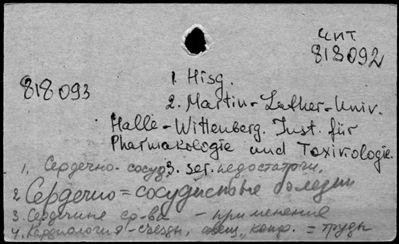 чит
818092
818093
1. Hisg.
2. Martin-Luther-Univ.
Halle-Wittenberg. Inst. für
Pharmakologie und Toxirologie.
1. Сердечно-сосуд. недостаточн.
2 Сердечно=сосудистые болезни
3. Сердечные ср-ва - применение
4. Кардиология-съезды, совещ., конф. = труды